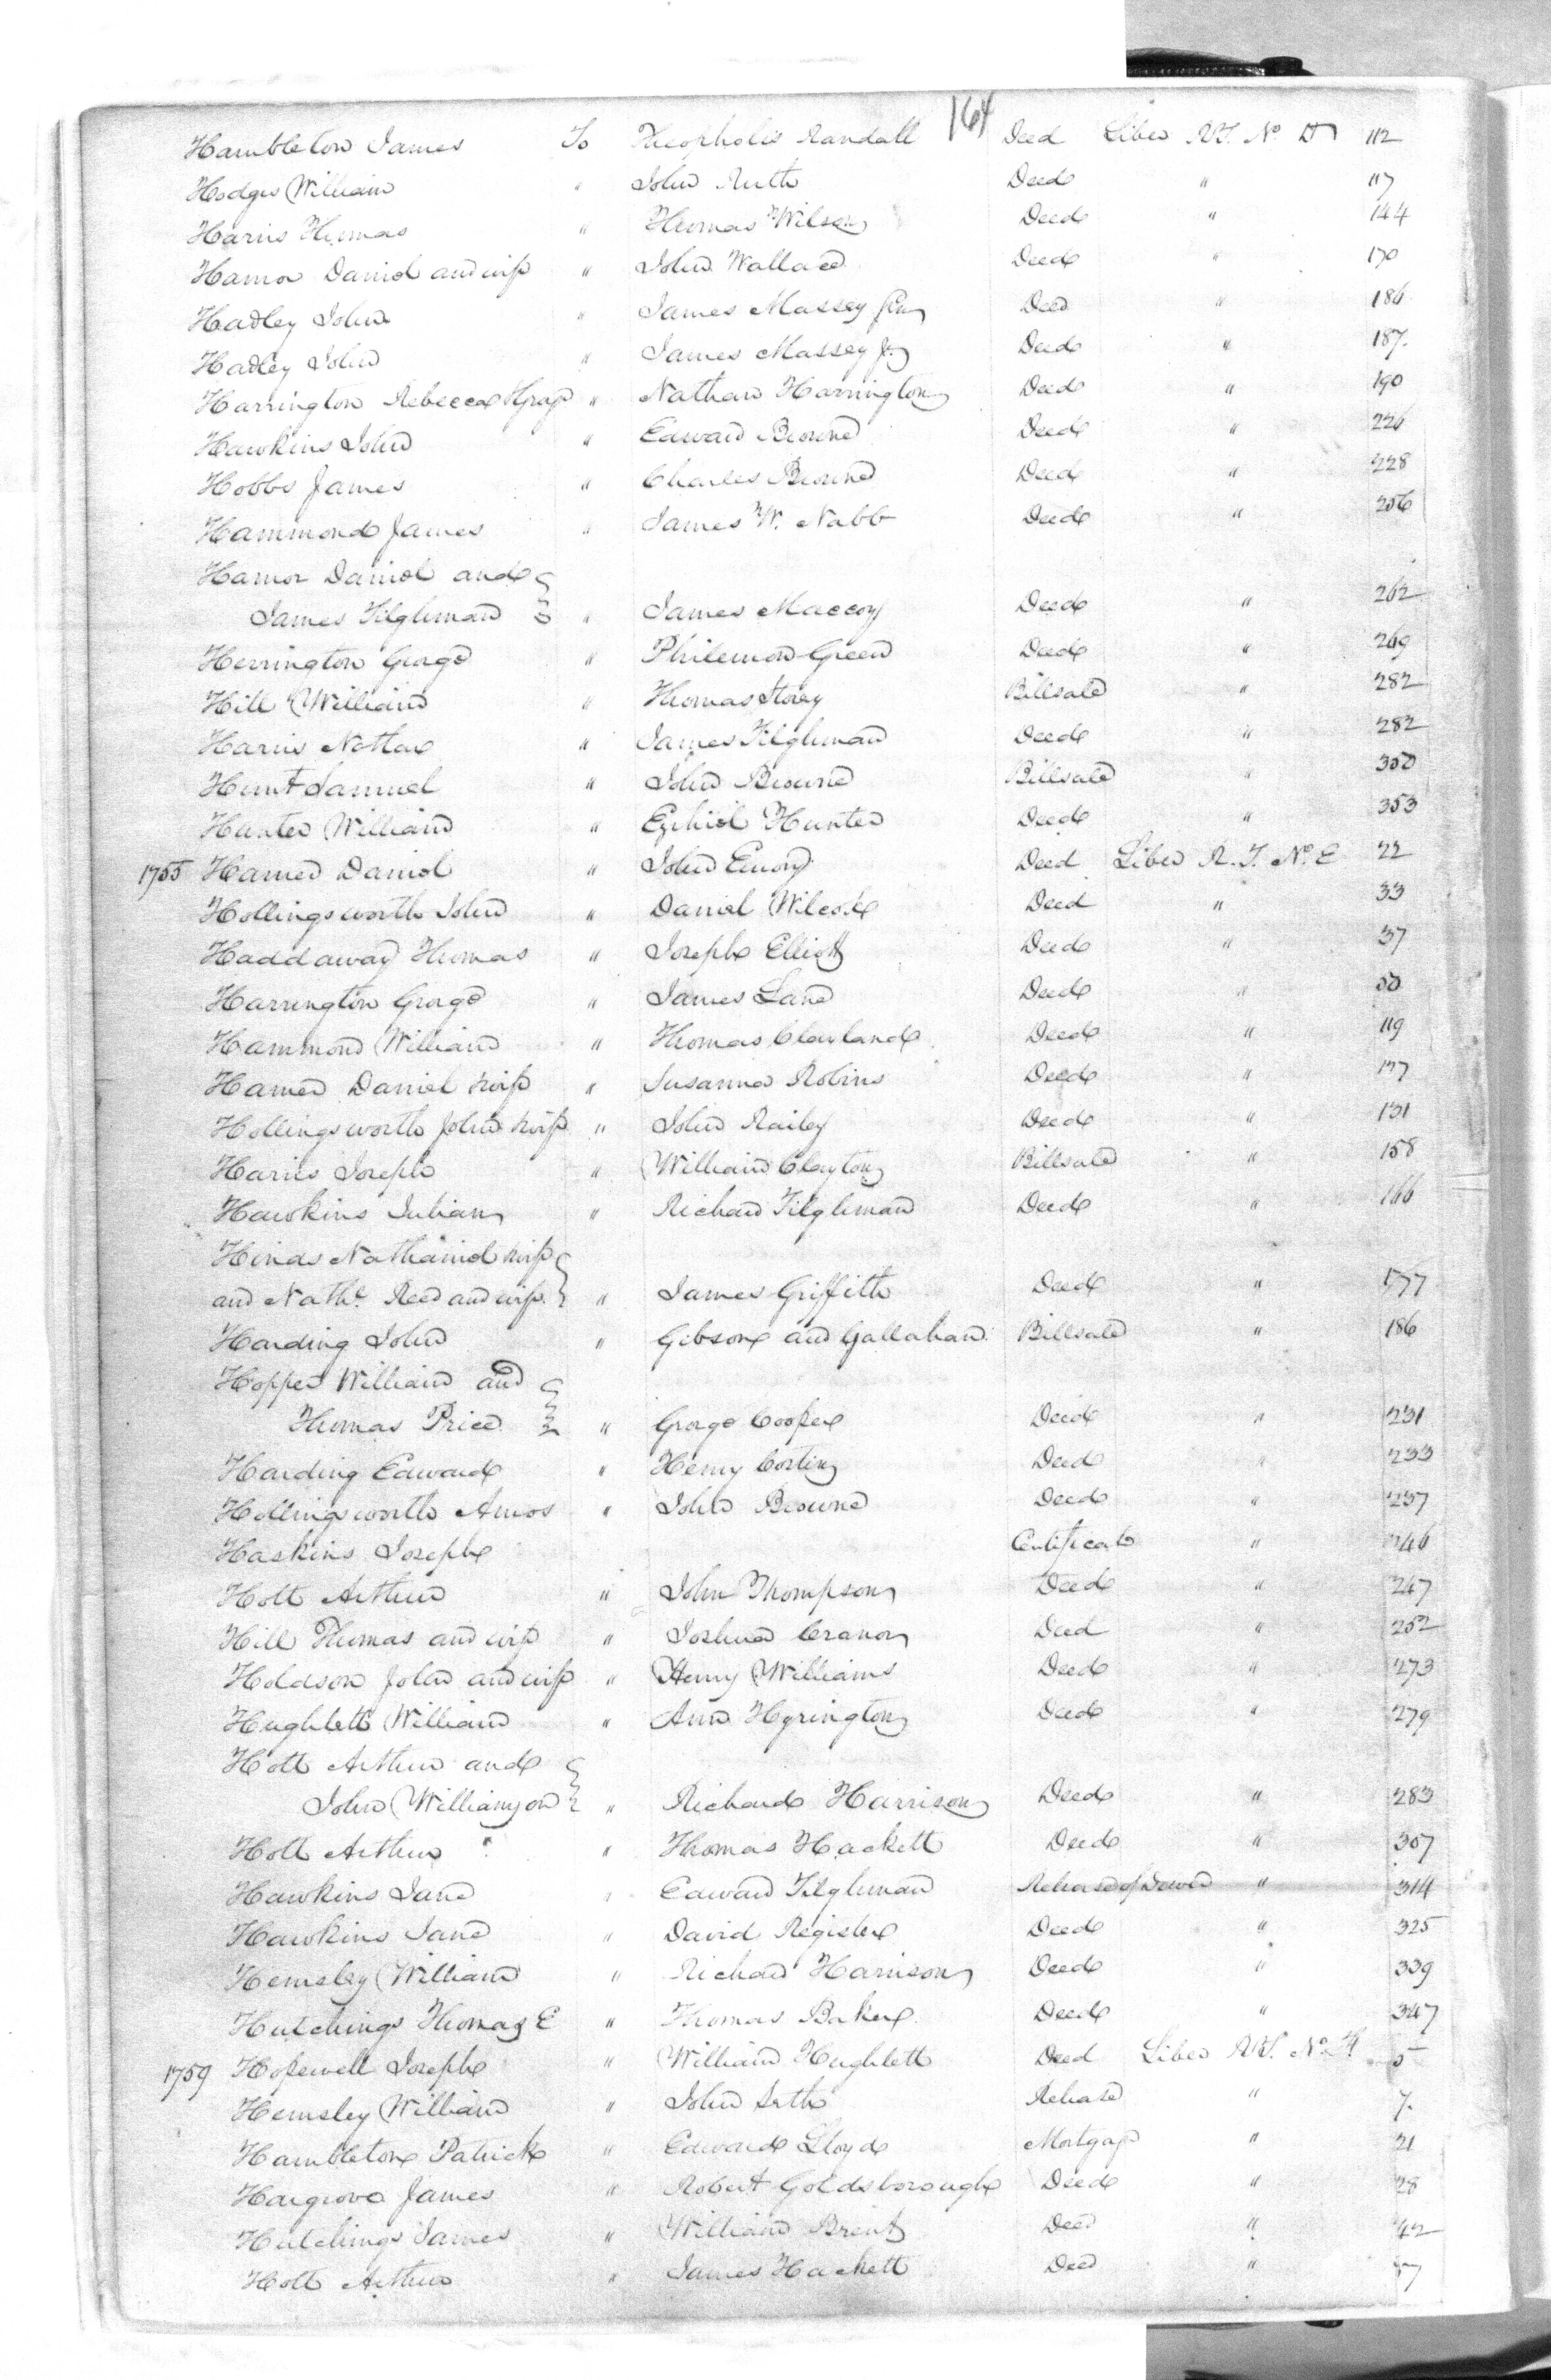 164
Hambleton James To Theopholis Randall Deed Liber RT. No. D 112
Hodges William " John Ruth Deed " 117
Harris Thomas " Thomas Wilson Deed " 144
Hamor Daniel and wife " John Wallace Deed " 170
Hadley John " James Massey Deed " 186
Hadley John " James Massey Jr Deed " 187
Harrington Rebecca & " Nathan Harrington Deed " 190
Hawkins John " Edward Browne Deed " 226
Hobbs James " Charles Browne Deed " 228
Hammond James " James W. Nabb Deed " 256
Hamor Daniel and
James Tilghman " James Maccoy Deed " 262
Herrington George " Philemon Green Deed " 269
Hill William " Thomas Storey Billsale " 282
Harris Nathan " James Tilghman Deed " 282
Hunt Samuel " John Browne Billsale " 350
Hunter William " Ezekiel Hunter Deed " 353
1755 Hamer Daniel " John Emory Deed Liber R.T. No. E 22
Hollingsworth John " Daniel Wilcox Deed " 33
Haddaway Thomas " Joseph Elliott Deed " 37
Harrington George " James Lane Deed "
Hammond William " Thomas Clayland Deed " 119
Hamer Daniel & wife " Susanna Robins Deed "
Hollingsworth John & wife " John Railey Deed " 151
Harris Joseph " William Clayton Billsale " 158
Hawkins Julian " Richard Tilghman Deed " 166
Hinds Nathaniel & wife
and Nathl. Reed and wife " James Griffith Deed " 177
Harding John " Gibson and Gallahan Billsale " 186
Hopper William and
Thomas Price " George Cooper Deed " 231
Harding Edward " Henry Costin Deed " 233
Hollingsworth Amos " John Browne Deed " 237
Haskins Joseph Certificate " 246
Holt Arthur " John Thompson Deed " 247
Hill Thomas and wife " Joshua Cranor Deed " 252
Holdson John and wife " Henry Williams Deed " 273
Hughlett William " Ann Hyrington Deed " 279
Holt Arthur and
John Williamson " Richard Harrison Deed " 283
Holt Arthur " Thomas Hackett Deed " 307
Hawkins Jane " Edward Tilghman Release of Dower " 314
Hawkins Jane " David Register Deed " 325
Hemsley William " Richard Harrison Deed " 339
Hutchings Thomas E " Thomas Baker Deed " 347
1759 Hopewell Joseph " William Hughlett Deed Liber RT. No. F 5
Hemsley William " John Seth Release " 7
Hambleton Patrick " Edward Lloyd Mortgage " 21
Hargrove James " Robert Goldsborough Deed " 28
Hutchings James " William Brent Deed " 42
Holt Arthur " James Hackett Deed "